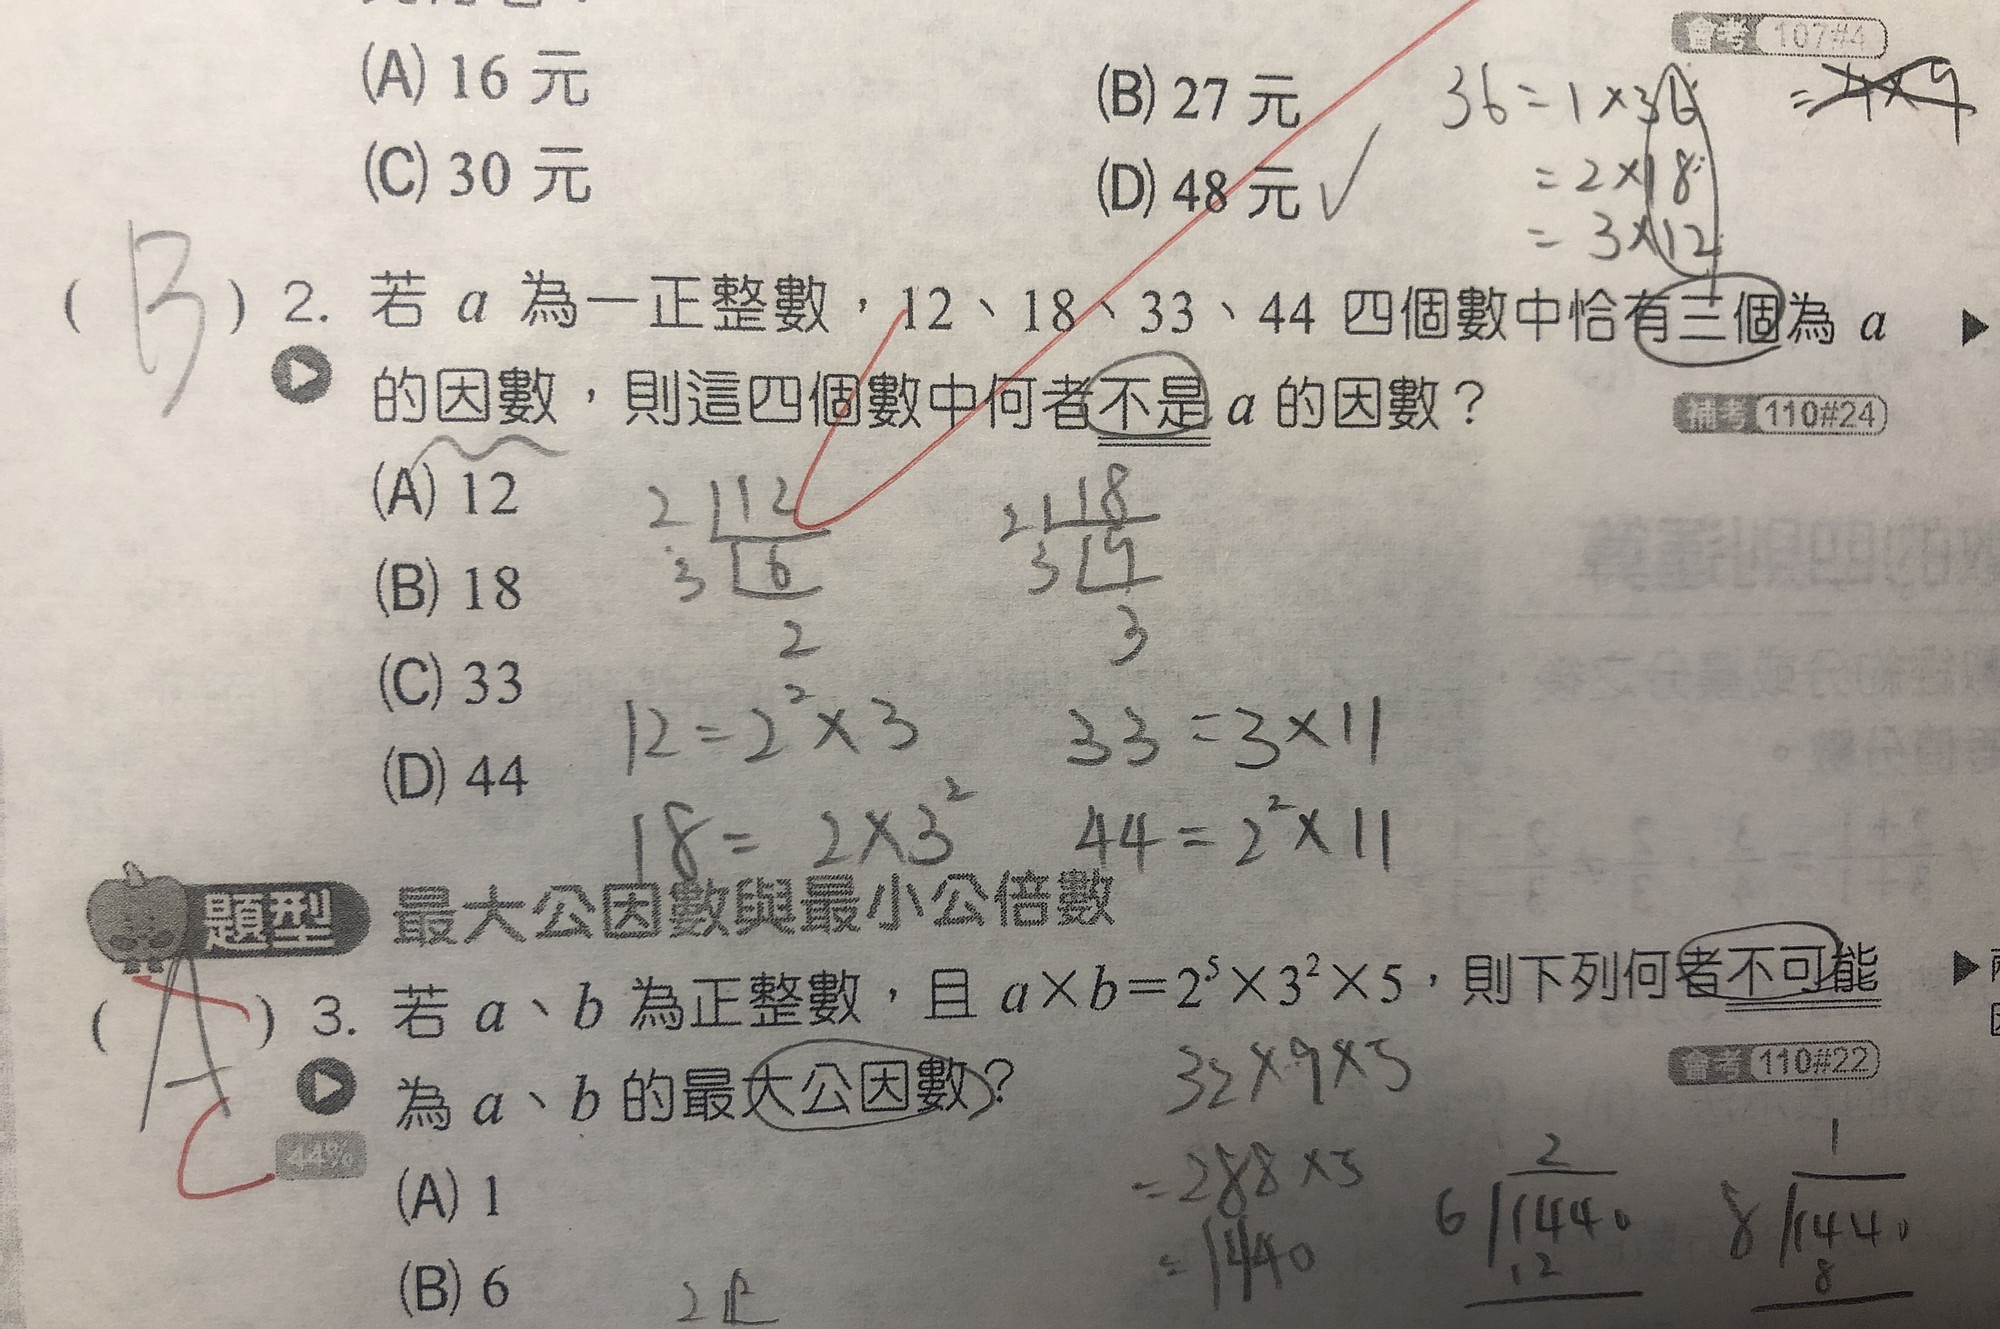 會考 107#4
(A) 16 元
(B) 27 元
(C) 30 元
(D) 48 元 ✓
36 = 1 × 36
= 4 × 9
= 2 × 18
= 3 × 12
( B ) 2. 若 a 為一正整數，12、18、33、44 四個數中恰有三個為 a
的因數，則這四個數中何者不是 a 的因數？
補考 110#24
(A) 12
(B) 18
(C) 33
(D) 44
2 12
3 6
2
2 18
3 9
3
12 = 2² × 3
33 = 3 × 11
18 = 2 × 3²
44 = 2² × 11
題型 最大公因數與最小公倍數
( A ) 3. 若 a、b 為正整數，且 a×b=2⁵×3²×5，則下列何者不可能
為 a、b 的最大公因數？
會考 110#22
C
44%
(A) 1
(B) 6
32 × 9 × 5
= 288 × 5
= 1440
2
6 1440
12
1
8 1440
8